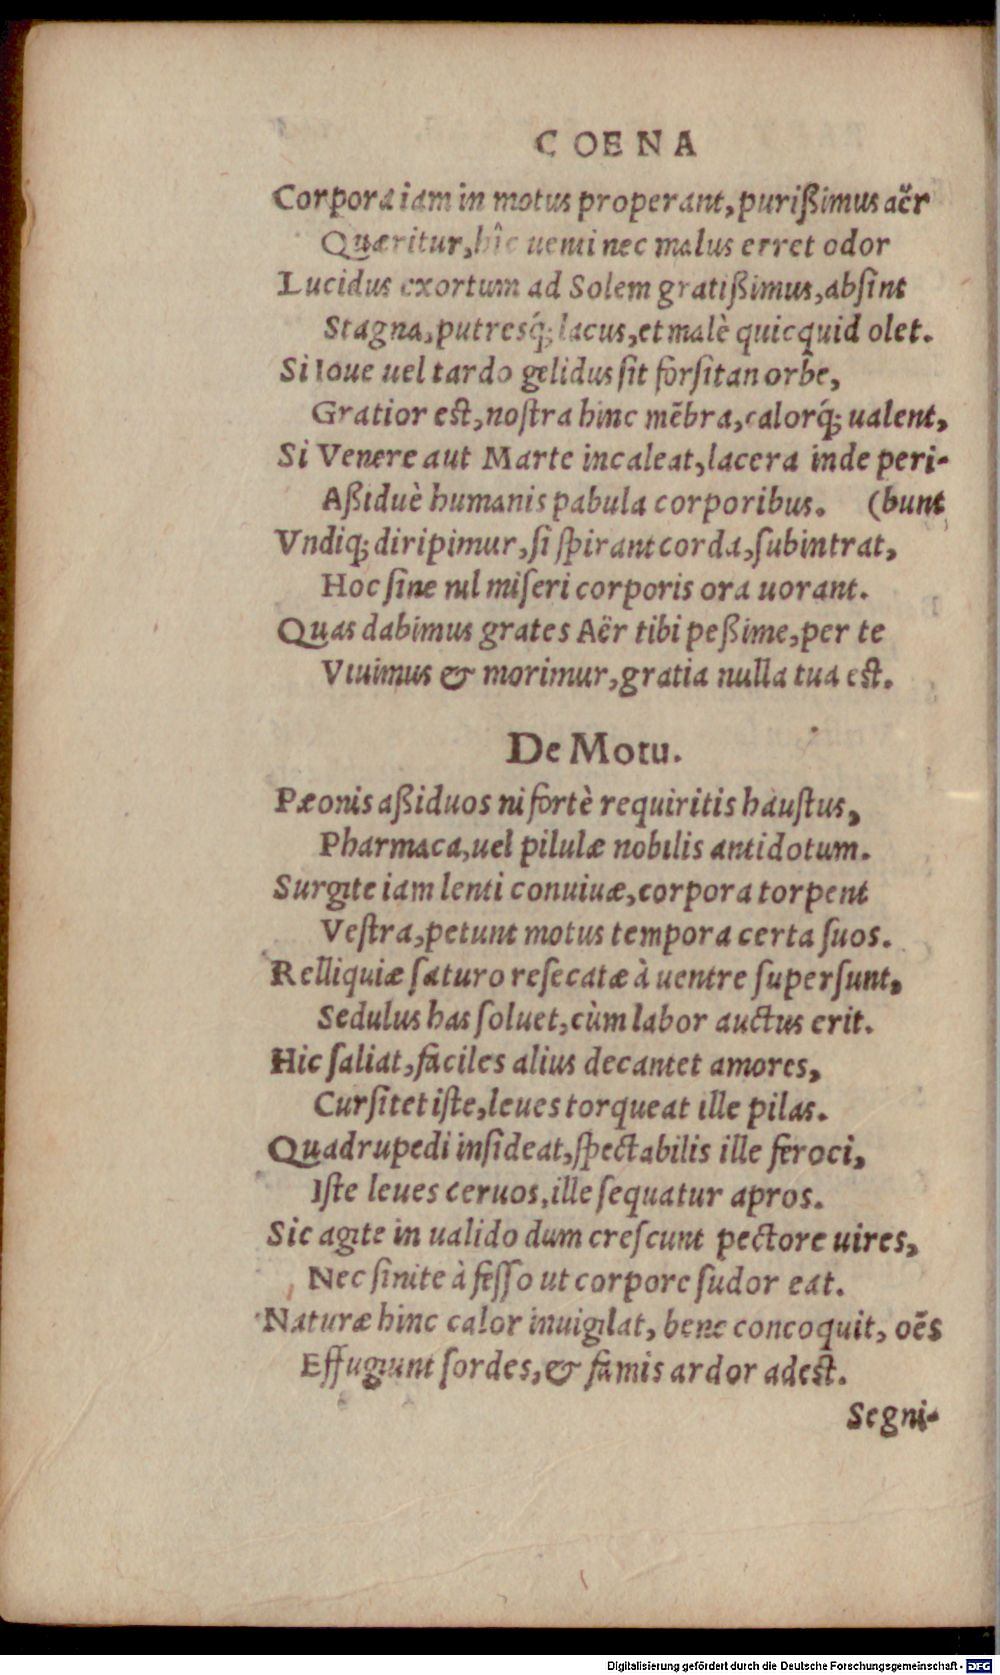 COENA
Corpora iam in motus properant, purißimus aër
Quæritur, hîc uenti nec malus erret odor
Lucidus exortum ad Solem gratißimus, absint
Stagna, putresq́; lacus, et malè quicquid olet.
Si Ioue uel tardo gelidus sit forsitan orbe,
Gratior est, nostra hinc mẽbra, calorq́; ualent,
Si Venere aut Marte incaleat, lacera inde peri-
Aßiduè humanis pabula corporibus. (bunt
Vndiq; diripimur, si spirant corda, subintrat,
Hoc sine nil miseri corporis ora uorant.
Quas dabimus grates Aër tibi peßime, per te
Viuimus & morimur, gratia nulla tua est.
De Motu.
Pæonis aßiduos ni fortè requiritis haustus,
Pharmaca, uel pilulæ nobilis antidotum.
Surgite iam lenti conuiuæ, corpora torpent
Vestra, petunt motus tempora certa suos.
Relliquiæ saturo resecatæ à uentre supersunt,
Sedulus has soluet, cùm labor auctus erit.
Hic saliat, faciles alius decantet amores,
Cursitet iste, leues torqueat ille pilas.
Quadrupedi insideat, spectabilis ille feroci,
Iste leues ceruos, ille sequatur apros.
Sic agite in ualido dum crescunt pectore uires,
Nec sinite à fesso ut corpore sudor eat.
Naturæ hinc calor inuigilat, bene concoquit, oẽs
Effugiunt sordes, & famis ardor adest.
Segni-
Digitalisierung gefördert durch die Deutsche Forschungsgemeinschaft - DFG